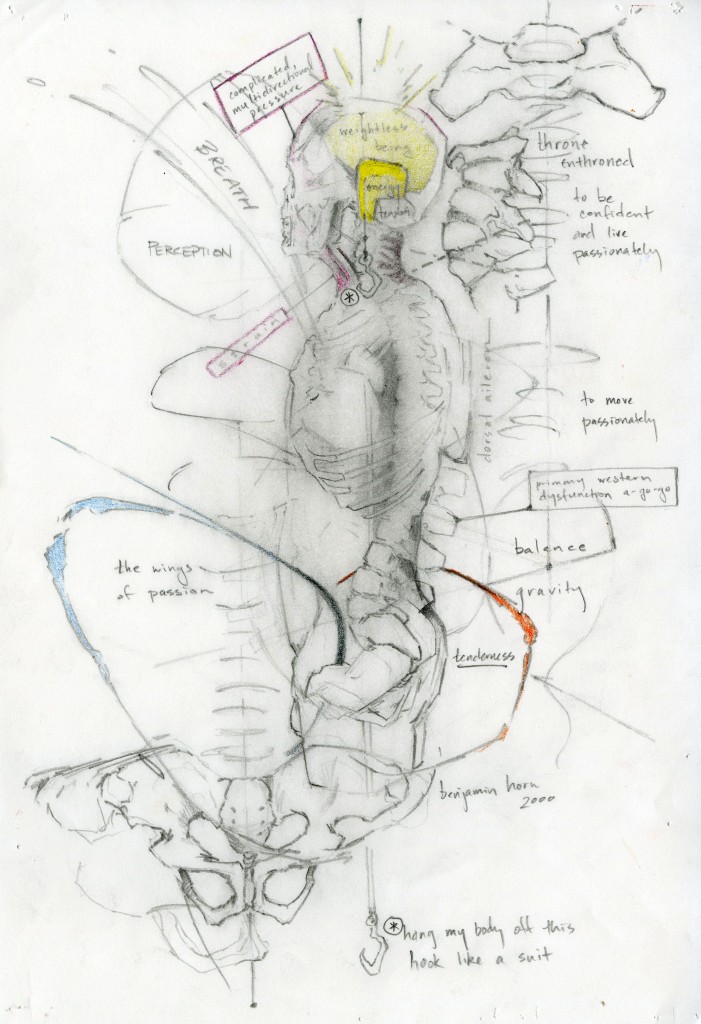 complicated,
multidirectional
pressure
weightless
being
energy
tension
BREATH
PERCEPTION
*
strain
throne
enthroned
to be
confident
and live
passionately
dorsal aileron
to move
passionately
primary western
dysfunction a-go-go
balance
gravity
the wings
of passion
tenderness
benjamin horn
2000
* hang my body off this
hook like a suit